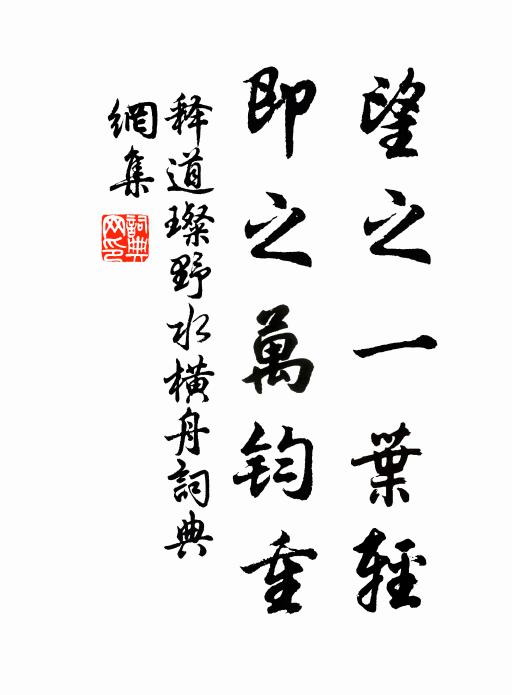 望之一葉輕
即之萬鈞重
释道璨野水橫舟詞典
網集
詞典
网印